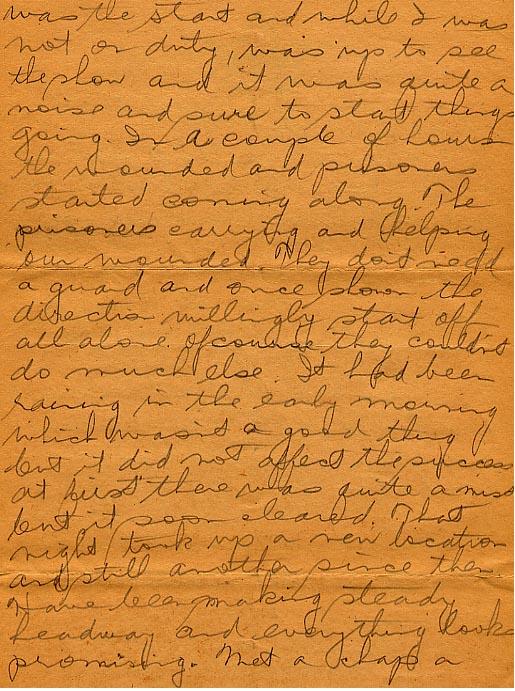 was the start and while I was
not on duty, was up to see
the show and it was quite a
noise and sure to start things
going. In a couple of hours
the wounded and prisoners
started coming along. The
prisoners carrying and helping
our wounded. They don't need
a guard and once shown the
direction willingly start off
all alone. Of course they couldn't
do much else. It had been
raining in the early morning
which wasn't a good thing
but it did not affect the success
at first there was quite a mist
but it soon cleared. That
night took up a new location
and still another since then
Have been making steady
headway and everything looks
promising. Met a chap a